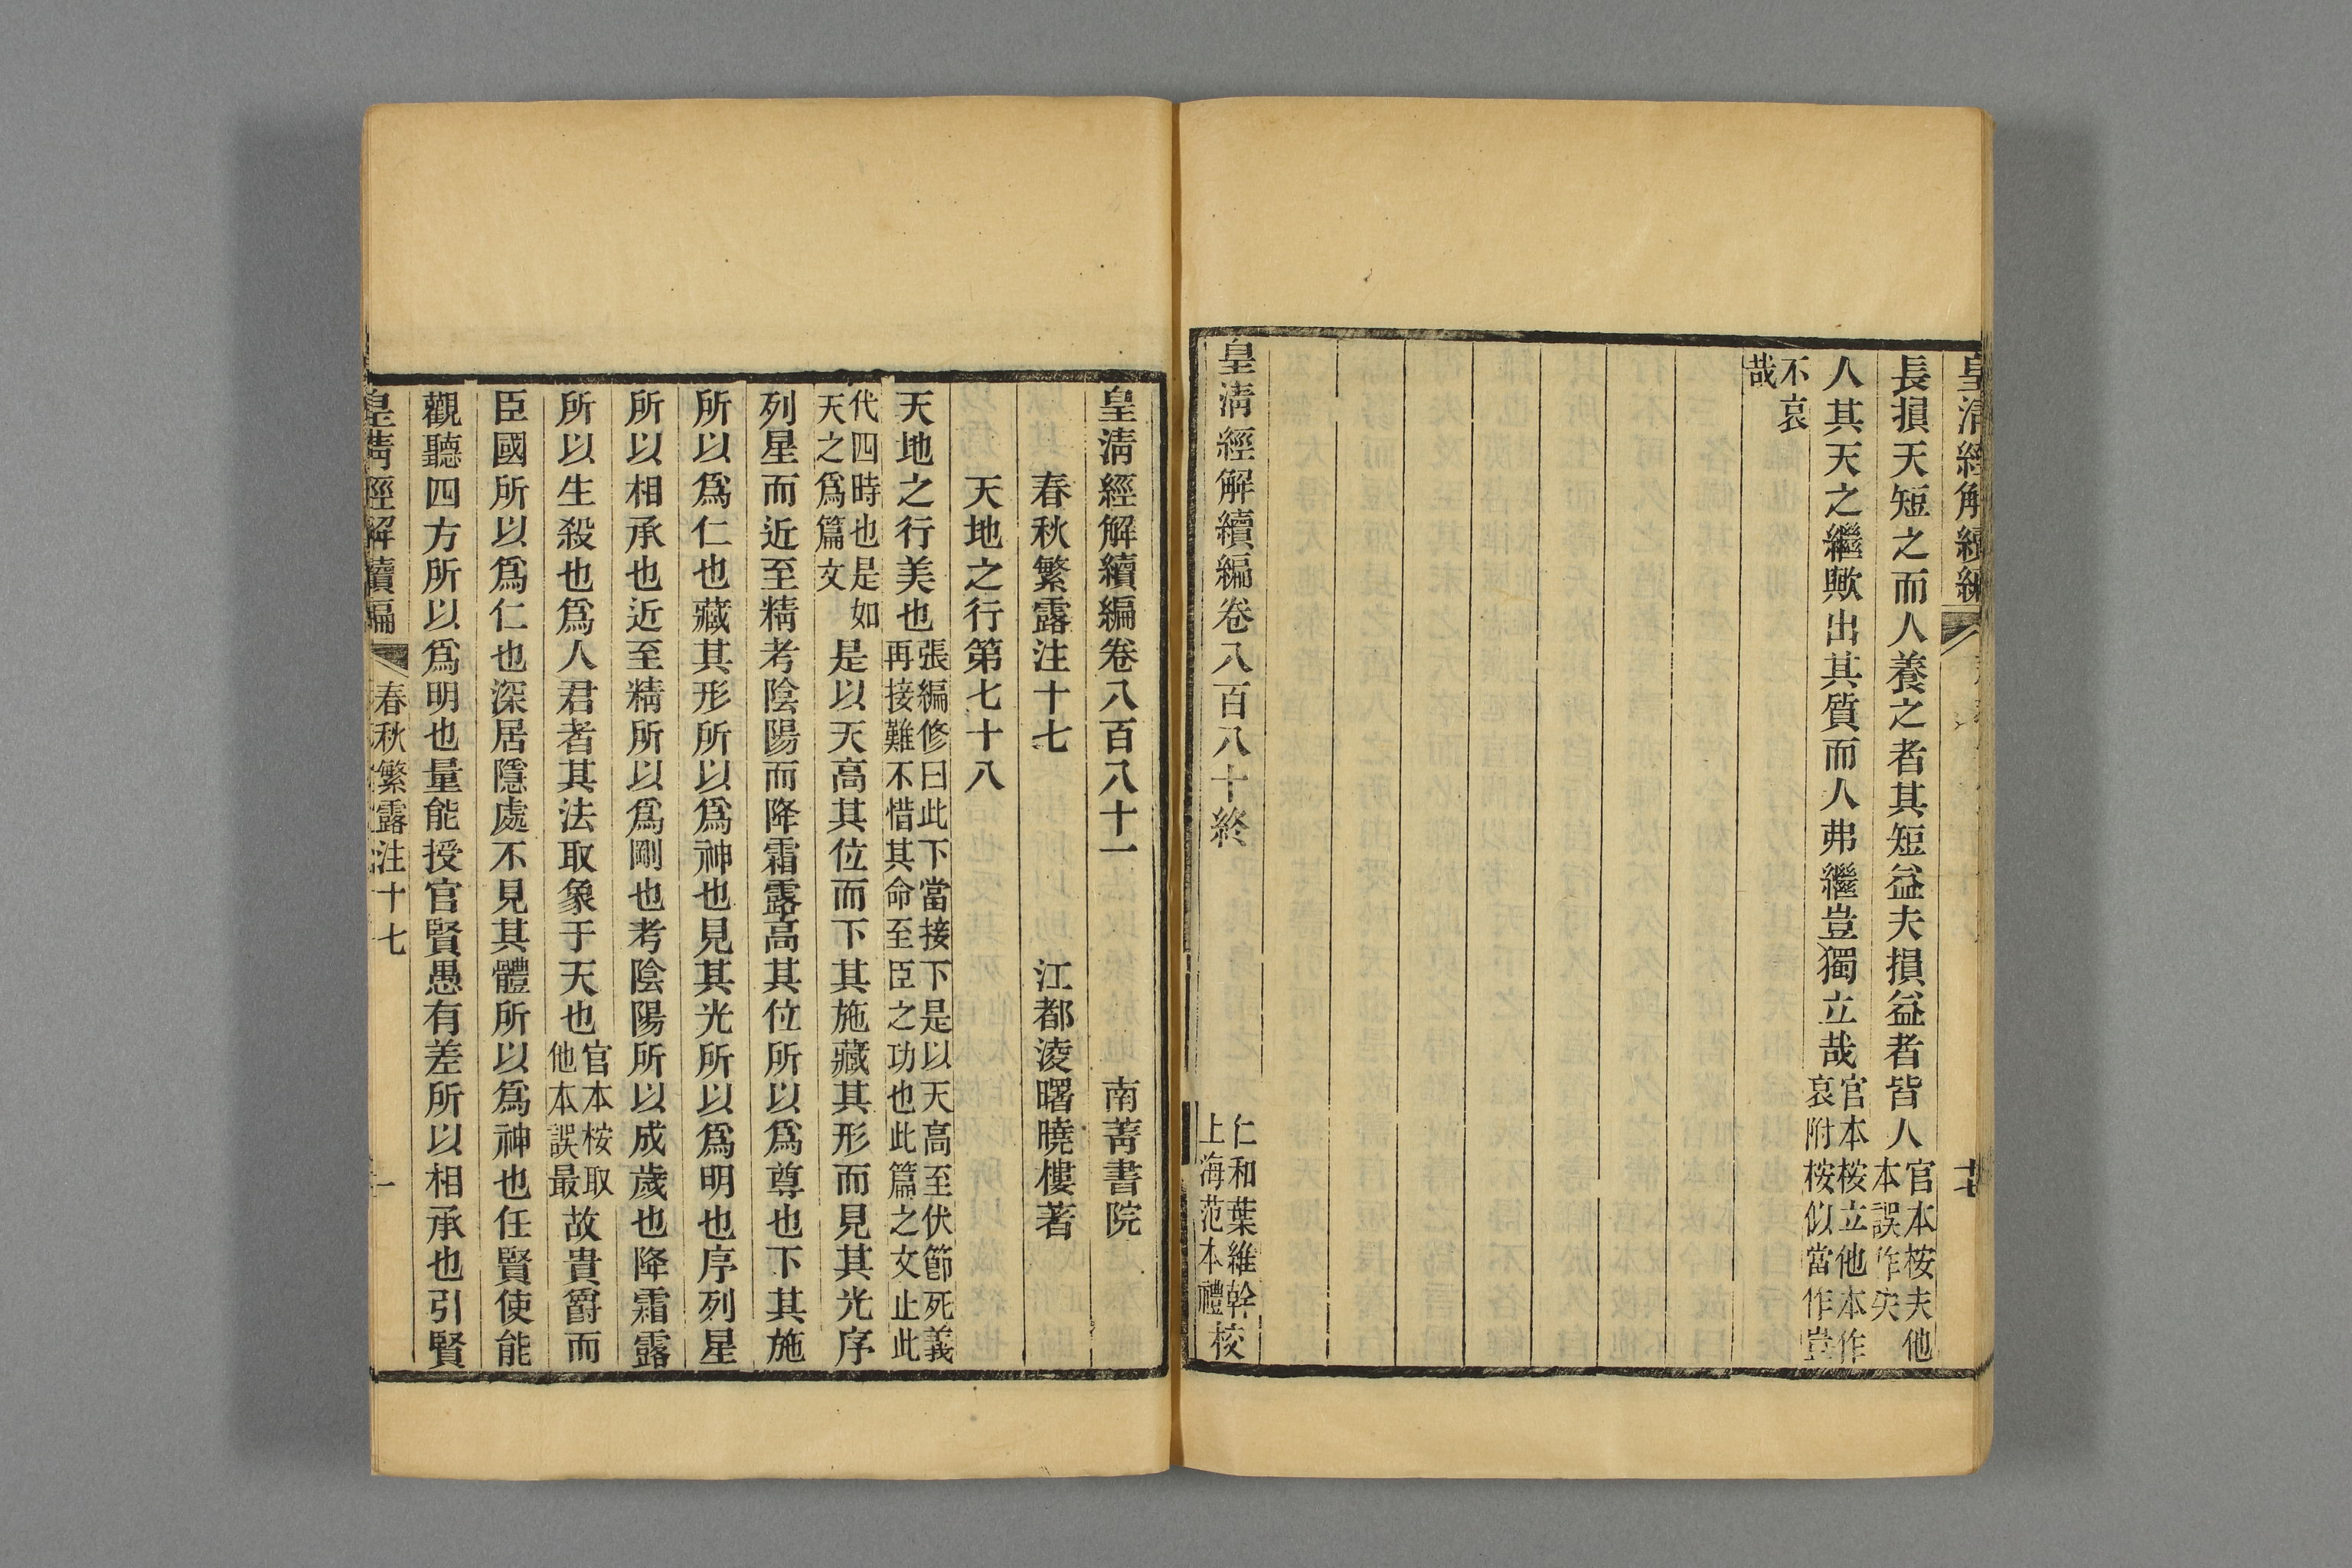 皇清經解續編
十七
長損天短之而人養之者其短益夫損益者皆人官本桉夫他
本誤作失
人其天之繼歟出其質而人弗繼豈獨立哉官本桉立他本作
哀附桉似當作豈
不哀
哉
皇清經解續編卷八百八十終
仁和葉維幹
上海范本禮校
皇清經解續編卷八百八十一
南菁書院
春秋繁露注十七
江都淩曙曉樓著
天地之行第七十八
天地之行美也張編修曰此下當接下是以天高至伏節死義
再接難不惜其命至臣之功也此篇之文止此
代四時也是如
天之爲篇文是以天高其位而下其施藏其形而見其光序
列星而近至精考陰陽而降霜露高其位所以爲尊也下其施
所以爲仁也藏其形所以爲神也見其光所以爲明也序列星
所以相承也近至精所以爲剛也考陰陽所以成歲也降霜露
所以生殺也爲人君者其法取象于天也官本桉取
他本誤最故貴爵而
臣國所以爲仁也深居隱處不見其體所以爲神也任賢使能
觀聽四方所以爲明也量能授官賢愚有差所以相承也引賢
皇清經解續編
春秋繁露注十七
一